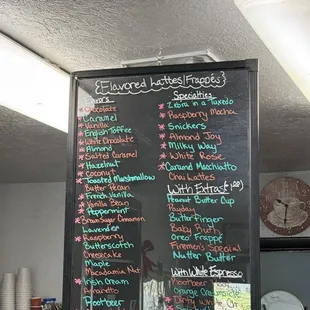 {Flavored Lattes/Frappés}
Flavors
* Chocolate
* Caramel
* Vanilla
* English Toffee
* White Chocolate
* Almond
* Salted Caramel
* Hazelnut
* Coconut
* Toasted Marshmallow
Butter Pecan
* French Vanilla
* Vanilla Bean
* Peppermint
* Brown Sugar Cinnamon
Lavender
* Raspberry
Butterscotch
Cheesecake
Maple
Macadamia Nut
* Irish Cream
Amaretto
Rootbeer
Specialties
* Zebra in a Tuxedo
* Raspberry Mocha
* Snickers
* Almond Joy
* Milky Way
* White Rose
* Caramel Macchiato
Chai Lattes
With Extras
Peanut Butter Cup
Payday
Butterfinger
Baby Ruth
Oreo Frappé
Firemen's Special
Nutter Butter
With White Espresso
* Rootbeer
Orange
* Dirty